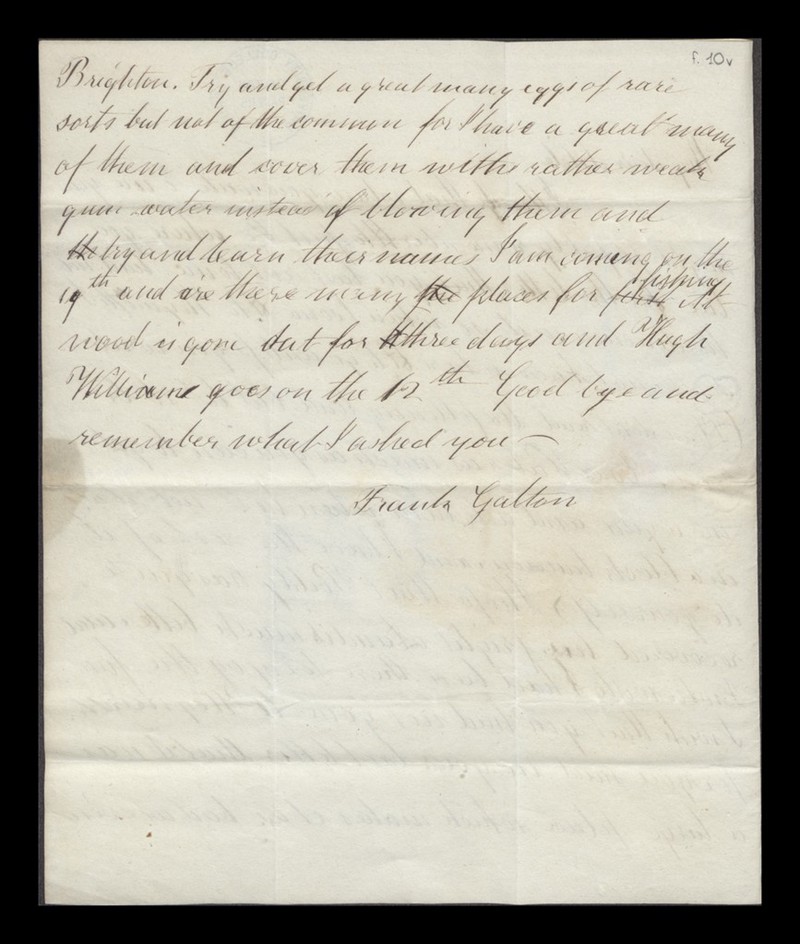 f. 10v
Brighton. Try and get a great many eggs of rare
sorts but not of the common for I have a great many
of them and cover them with rather weak
gum water instead of blowing them and
th try and learn their names I am coming on the
19th and are there many the places for fishing At
wood is gone but for three days and Hugh
Williams goes on the 12th Good bye and
remember what I asked you —
Frank Galton